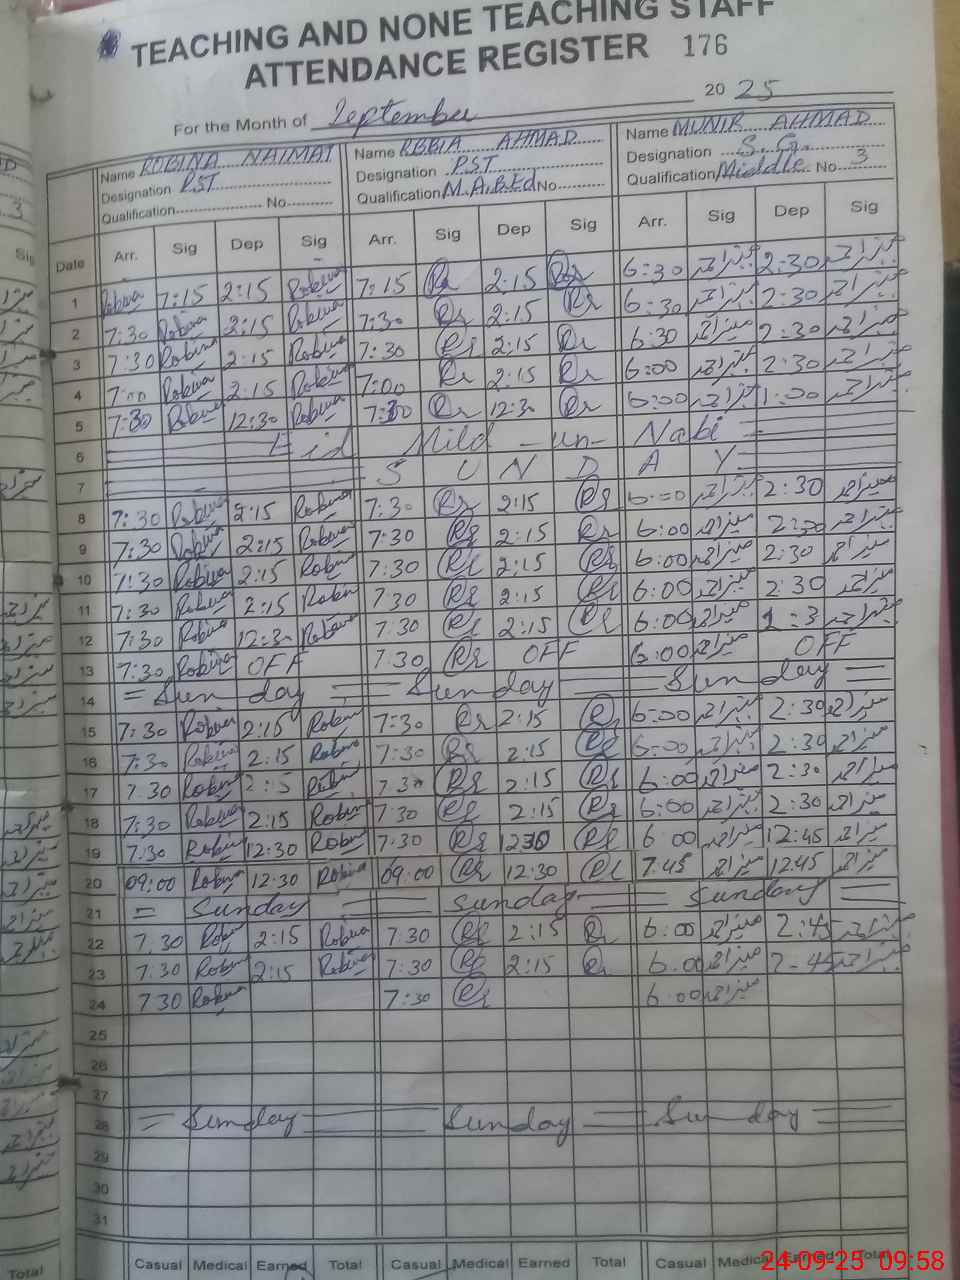 TEACHING AND NONE TEACHING STAFF
ATTENDANCE REGISTER 176
For the Month of September 2025
Name ROBINA NAIMAT Name RBBIA AHMAD Name MUNIR AHMAD
Designation PST Designation PST Designation S.G.
Qualification No Qualification M.A.B.Ed No Qualification Middle No 3
Date Arr. Sig Dep Sig Arr. Sig Dep Sig Arr. Sig Dep Sig
1 Robina 7:15 2:15 Robina 7:15 Rr 2:15 Rr 6:30 منیراحمد 2:30 منیراحمد
2 7:30 Robina 2:15 Robina 7:30 Rr 2:15 Rr 6:30 منیراحمد 2:30 منیراحمد
3 7:30 Robina 2:15 Robina 7:30 Rr 2:15 Rr 6:30 منیراحمد 2:30 منیراحمد
4 7:00 Robina 2:15 Robina 7:00 Rr 2:15 Rr 6:00 منیراحمد 2:30 منیراحمد
5 7:30 Robina 12:30 Robina 7:30 Rr 12:30 Rr 6:00 منیراحمد 1:00 منیراحمد
6 Eid Mild -un- Nabi
7 S U N D A Y
8 7:30 Robina 2:15 Robina 7:30 Rr 2:15 Rr 6:00 منیراحمد 2:30 منیراحمد
9 7:30 Robina 2:15 Robina 7:30 Rr 2:15 Rr 6:00 منیراحمد 2:30 منیراحمد
10 7:30 Robina 2:15 Robina 7:30 Rr 2:15 Rr 6:00 منیراحمد 2:30 منیراحمد
11 7:30 Robina 2:15 Robina 7:30 Rr 2:15 Rr 6:00 منیراحمد 2:30 منیراحمد
12 7:30 Robina 12:30 Robina 7:30 Rr 2:15 Rr 6:00 منیراحمد منیراحمد
13 7:30 Robina OFF 7:30 Rr OFF 6:00 منیراحمد OFF
14 = Sunday = Sunday = Sunday =
15 7:30 Robina 2:15 Robina 7:30 Rr 2:15 Rr 6:00 منیراحمد 2:30 منیراحمد
16 7:30 Robina 2:15 Robina 7:30 Rr 2:15 Rr 6:00 منیراحمد 2:30 منیراحمد
17 7:30 Robina 2:15 Robina 7:30 Rr 2:15 Rr 6:00 منیراحمد 2:30 منیراحمد
18 7:30 Robina 2:15 Robina 7:30 Rr 2:15 Rr 6:00 منیراحمد 2:30 منیراحمد
19 7:30 Robina 12:30 Robina 7:30 Rr 1230 Rr 6 00 منیراحمد 12:45 منیراحمد
20 09:00 Robina 12:30 Robina 09:00 Rr 12:30 Rr 7.45 منیراحمد 1245 منیراحمد
21 = Sunday = Sunday = Sunday =
22 7.30 Robina 2:15 Robina 7:30 Rr 2:15 Rr 6:00 منیراحمد 2:45 منیراحمد
23 7.30 Robina 2:15 Robina 7:30 Rr 2:15 Rr 6.00 منیراحمد 2-45 منیراحمد
24 7 30 Robina 7:30 Rr 6.00 منیراحمد
25
26
27
28 = Sunday = Sunday = Sunday =
29
30
31
Casual Medical Earned Total Casual Medical Earned Total Casual Medical Earned Total
Total
24-09-25 09:58